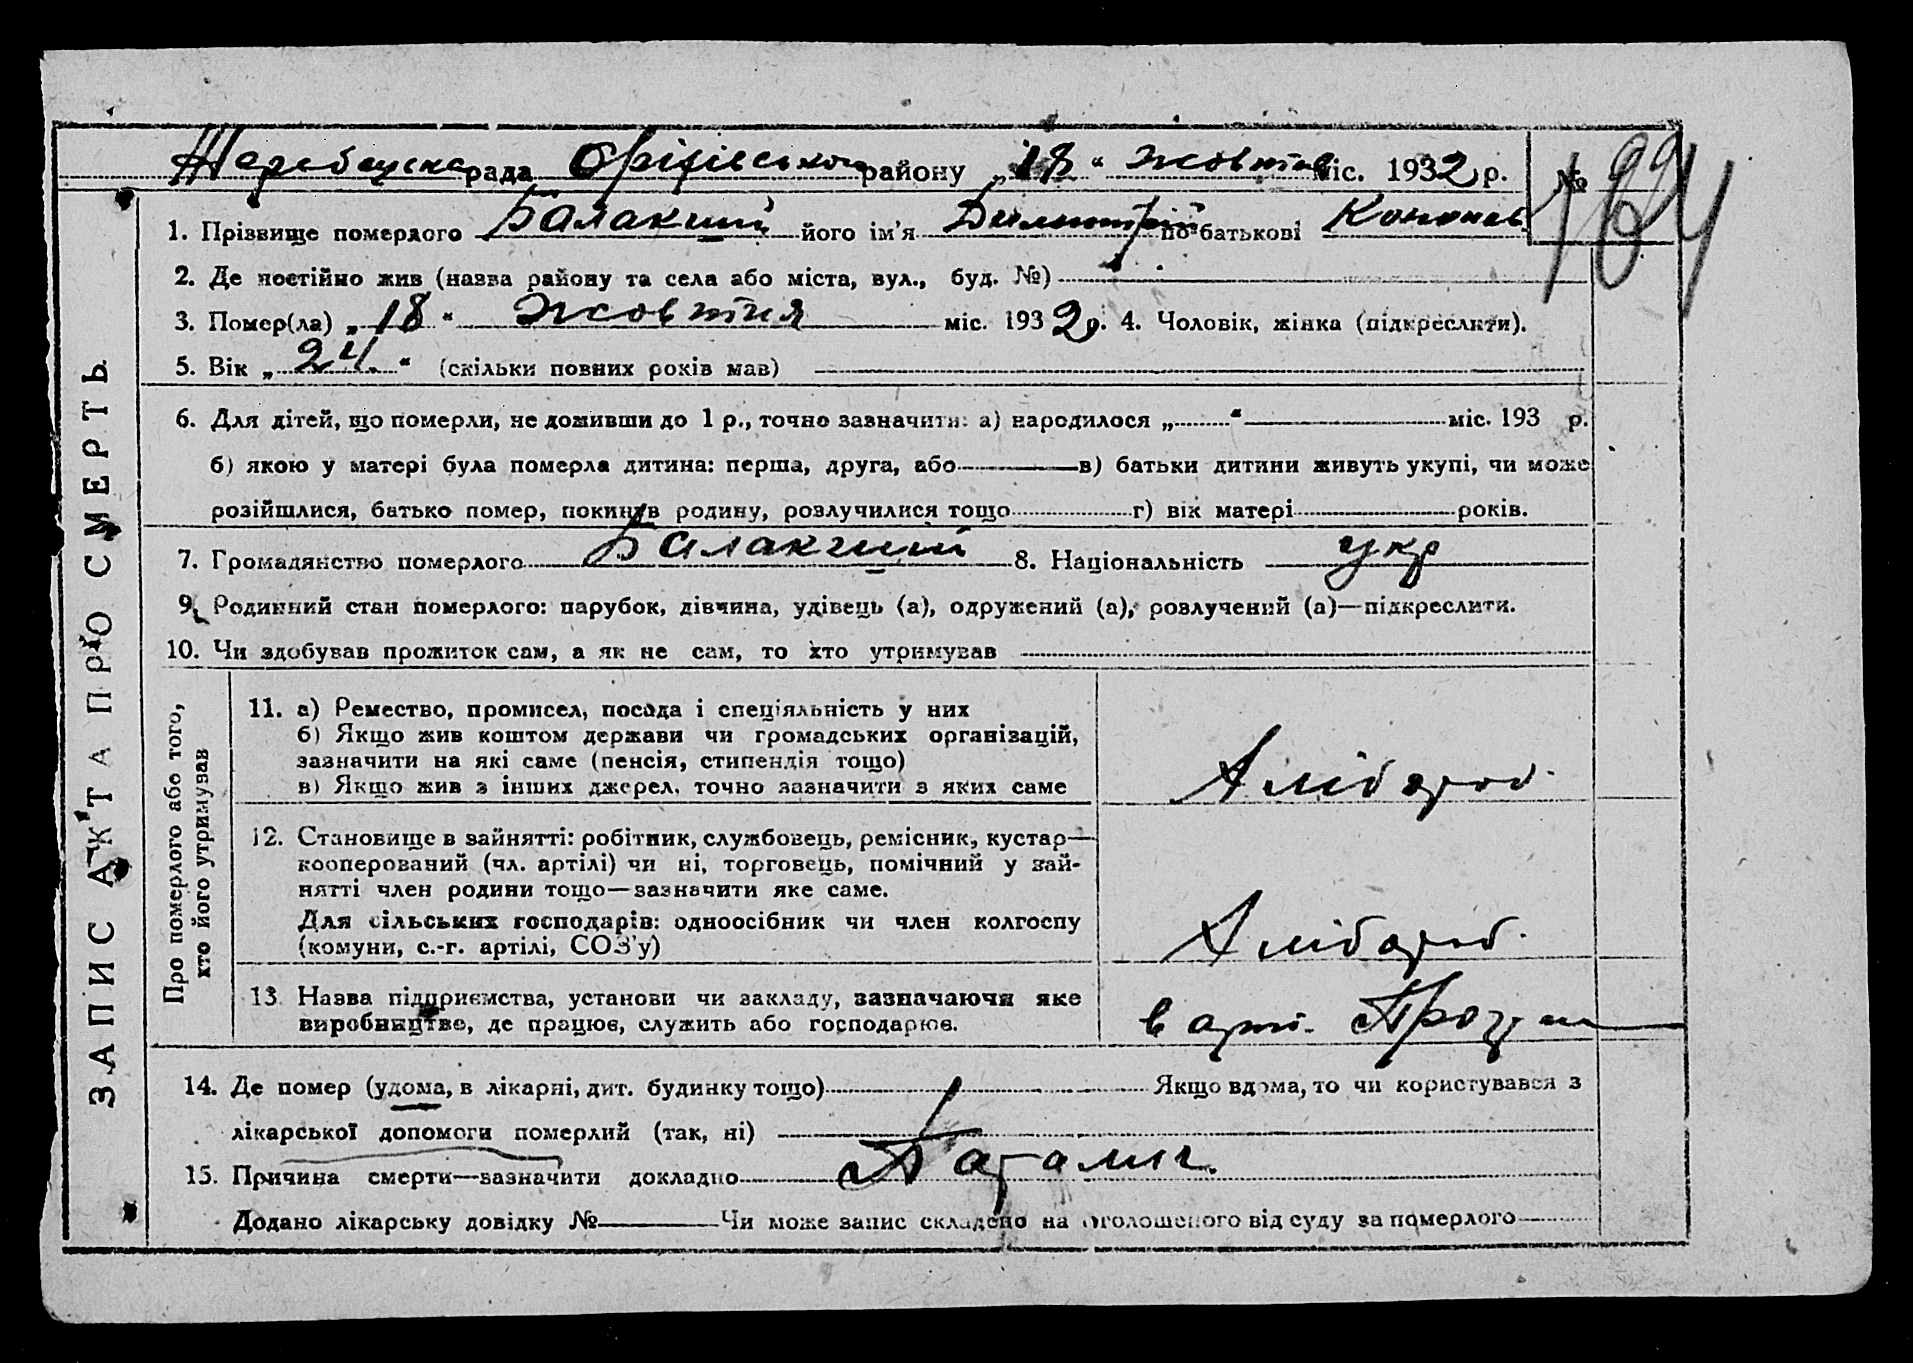 Жеребецська рада Оріхівського району „18“ жовтня міс. 1932 р. № 99
164
1. Прізвище померлого Балакший його ім'я Дилмитрій по батькові Кононов
2. Де постійно жив (назва району та села або міста, вул., буд. №)
3. Помер(ла) „18“ жовтня міс. 1932 р. 4. Чоловік, жінка (підкреслити).
5. Вік „24.“ (скільки повних років мав)
6. Для дітей, що померли, не доживши до 1 р., точно зазначити: а) народилося „ “ міс. 193 р.
б) якою у матері була померла дитина: перша, друга, або в) батьки дитини живуть укупі, чи може
розійшлися, батько помер, покинув родину, розлучилися тощо г) вік матері років.
7. Громадянство померлого Балакший 8. Національність укр
9. Родинний стан померлого: парубок, дівчина, удівець (а), одружений (а), розлучений (а)—підкреслити.
10. Чи здобував прожиток сам, а як не сам, то хто утримував
11. а) Ремество, промисел, посада і спеціяльність у них
б) Якщо жив коштом держави чи громадських організацій,
зазначити на які саме (пенсія, стипендія тощо)
в) Якщо жив з інших джерел, точно зазначити з яких саме
Хлібороб.
12. Становище в зайнятті: робітник, службовець, ремісник, кустар—
кооперований (чл. артілі) чи ні, торговець, помічний у зай-
нятті член родини тощо—зазначити яке саме.
Для сільських господарів: одноосібник чи член колгоспу
(комуни, с.-г. артілі, СОЗ'у)
Хлібороб.
13. Назва підприємства, установи чи закладу, зазначаючи яке
виробництво, де працює, служить або господарює.
в арт.
14. Де помер (удома, в лікарні, дит. будинку тощо) Якщо вдома, то чи користувався з
лікарської допомоги померлий (так, ні)
15. Причина смерти—зазначити докладно
Додано лікарську довідку № Чи може запис складено на оголошеного від суду за померлого
ЗАПИС АКТА ПРО СМЕРТЬ
Про померлого або того,
хто його утримував